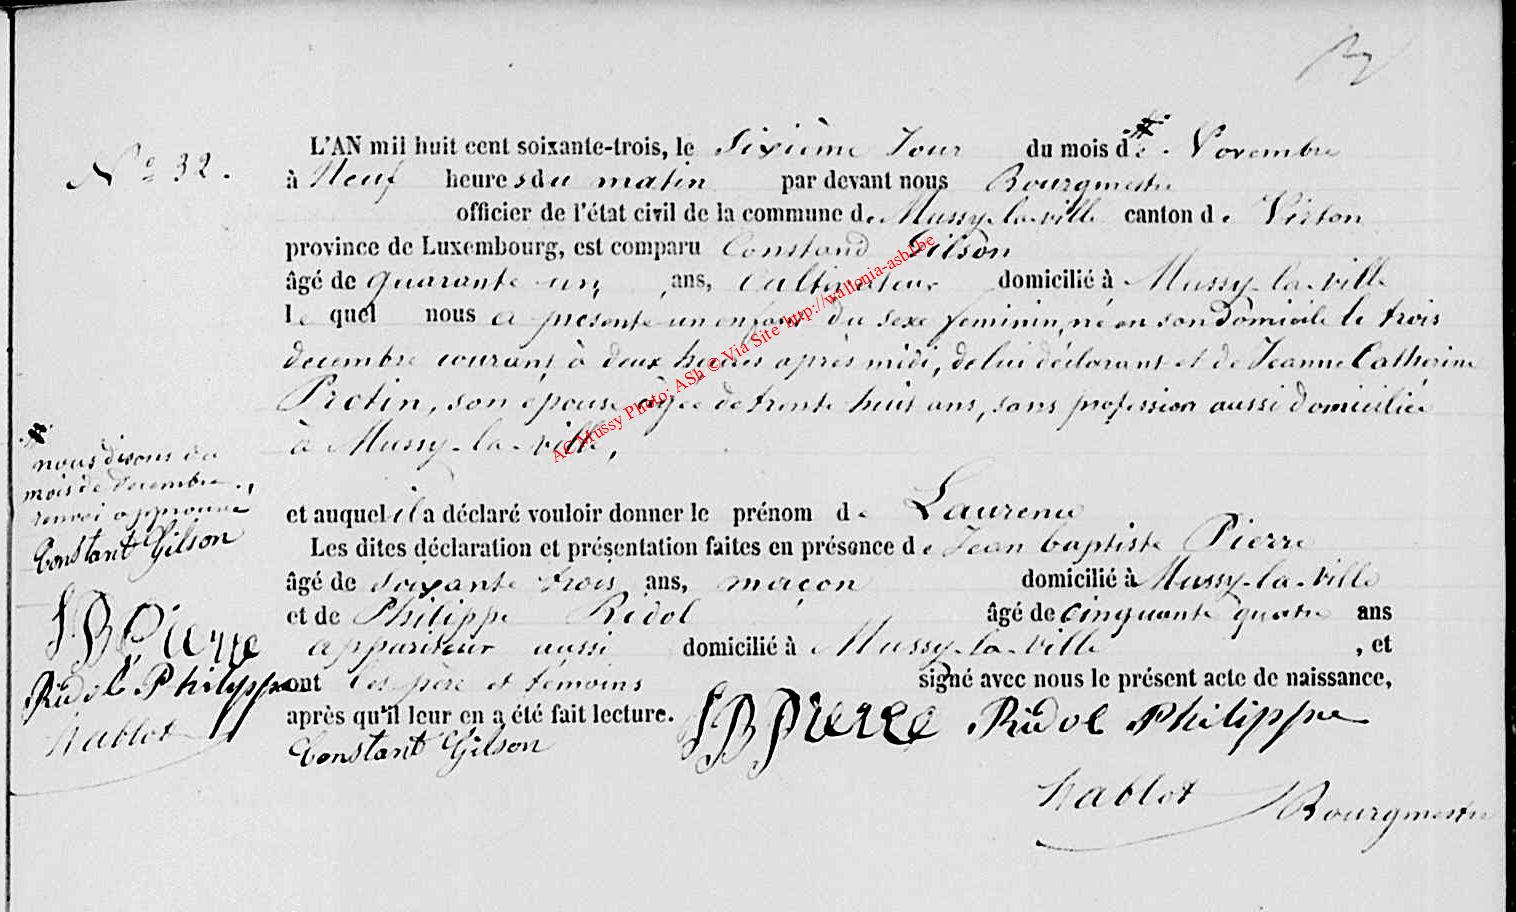 N° 32.
L'AN mil huit cent soixante-trois, le Sixième Jour du mois de Novembre
à Neuf heures du matin par devant nous Bourgmestre
officier de l'état civil de la commune de Mussy-la-ville canton de Virton
province de Luxembourg, est comparu Constand Gilson
âgé de quarante un, ans, Cultivateur domicilié à Mussy-la-ville
le quel nous a présenté un enfant du sexe feminin, né en son domicile le trois
decembre courant à deux heures après midi, de lui déclarant et de Jeanne Catherine
Pretin, son epouse agée de trente huit ans, sans profession aussi domiciliée
à Mussy-la-ville,
et auquel il a déclaré vouloir donner le prénom de
Les dites déclaration et présentation faites en présence de Jean baptiste Pierre
âgé de soixante trois ans, maçon domicilié à Mussy-la-ville
et de Philippe Ridol âgé de cinquante quatre ans
appariteur aussi domicilié à Mussy-la-ville, et
ont les père et témoins signé avec nous le présent acte de naissance,
après qu'il leur en a été fait lecture.
Constant Gilson JB Pierre Ridol Philippe
Nablot Bourgmestre
nous disons du
mois de decembre.,
renvoi approuvé
Constant Gilson
JB Pierre
Ridol Philippe
Nablot
AC Mussy Photo: ASh © Via Site http://wallonia-asbl.be